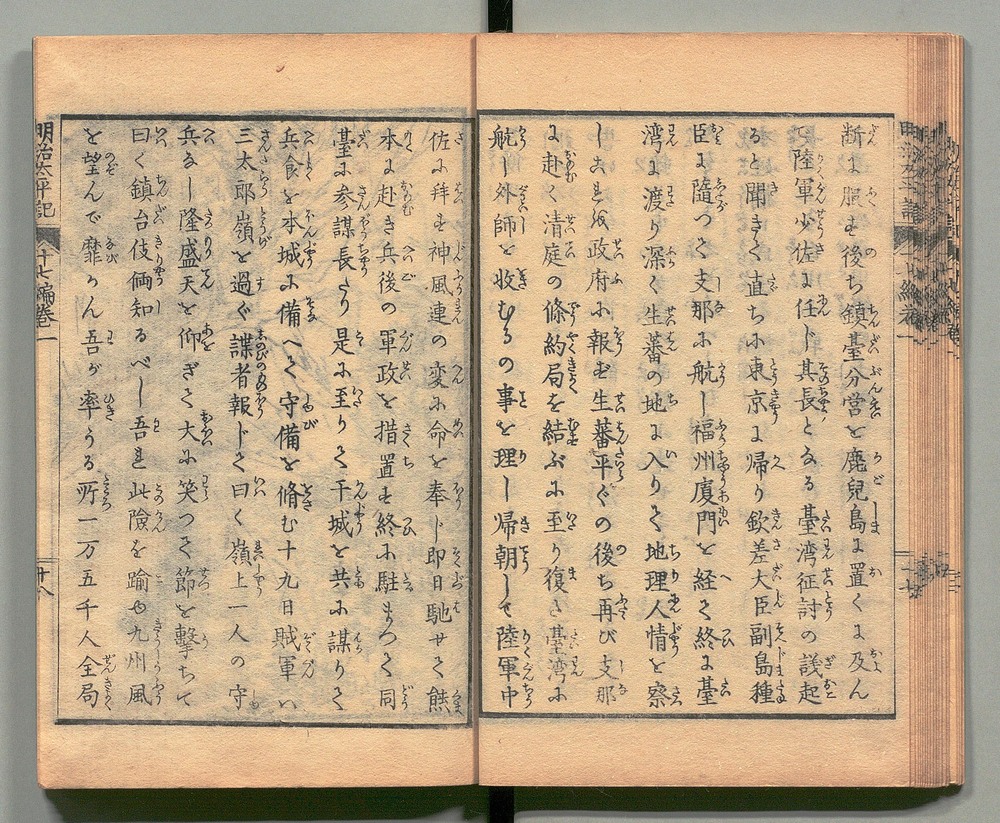 断に服も後ち鎮臺分営を鹿兒島に置くに及ん
で陸軍少佐に任じ其長となる臺湾征討の議起
ると聞きて直ちに東京に帰り欽差大臣副島種
臣に隨つて支那に航し福州廈門を経て終に臺
湾に渡り深く生蕃の地に入りて地理人情を察
し之を政府に報ず生蕃平ぐの後ち再び支那
に赴く清庭の條約局を結ぶに至り復た臺湾に
航し外師を收むるの事を理し帰朝して陸軍中
佐に拜す神風連の変に命を奉じ即日馳せて熊
本に赴き兵後の軍政を措置す終に駐まつて同
臺に参謀長たり是に至りて干城を共に謀りて
兵食を本城に備へて守備を脩む十九日賊軍ハ
三太郎嶺を過ぐ諜者報じて曰く嶺上一人の守
兵なし隆盛天を仰ぎて大に笑つて節を擊ちて
曰く鎮台伎倆知るべし吾れ此險を踰ゆ九州風
を望んで靡かん吾が率うる所一万五千人全局
明治太平記
十七編巻一
十八